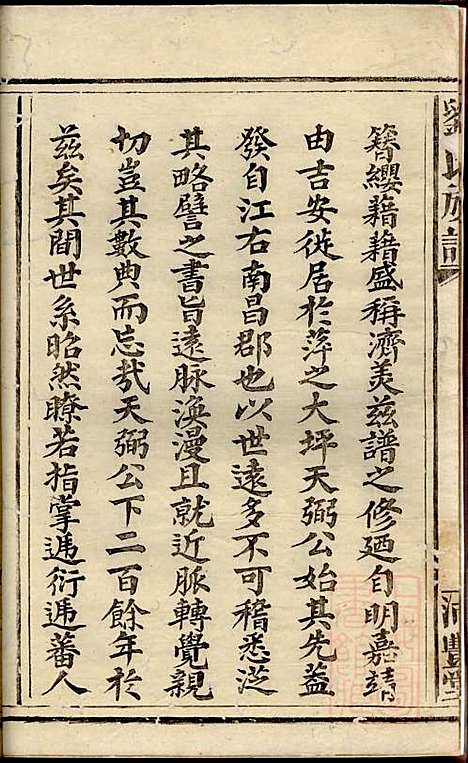 劉氏族譜
簪纓藉藉盛稱濟美茲譜之修廼自明嘉靖
由吉安徙居於萍之大坪天弼公始其先蓋
發自江右南昌郡也以世遠多不可稽悉從
其略譬之書旨遠脉渙漫且就近脈轉覺親
切豈其數典而忘㢤天弼公下二百餘年於
茲矣其間世系昭然瞭若指掌遞衍遞蕃人